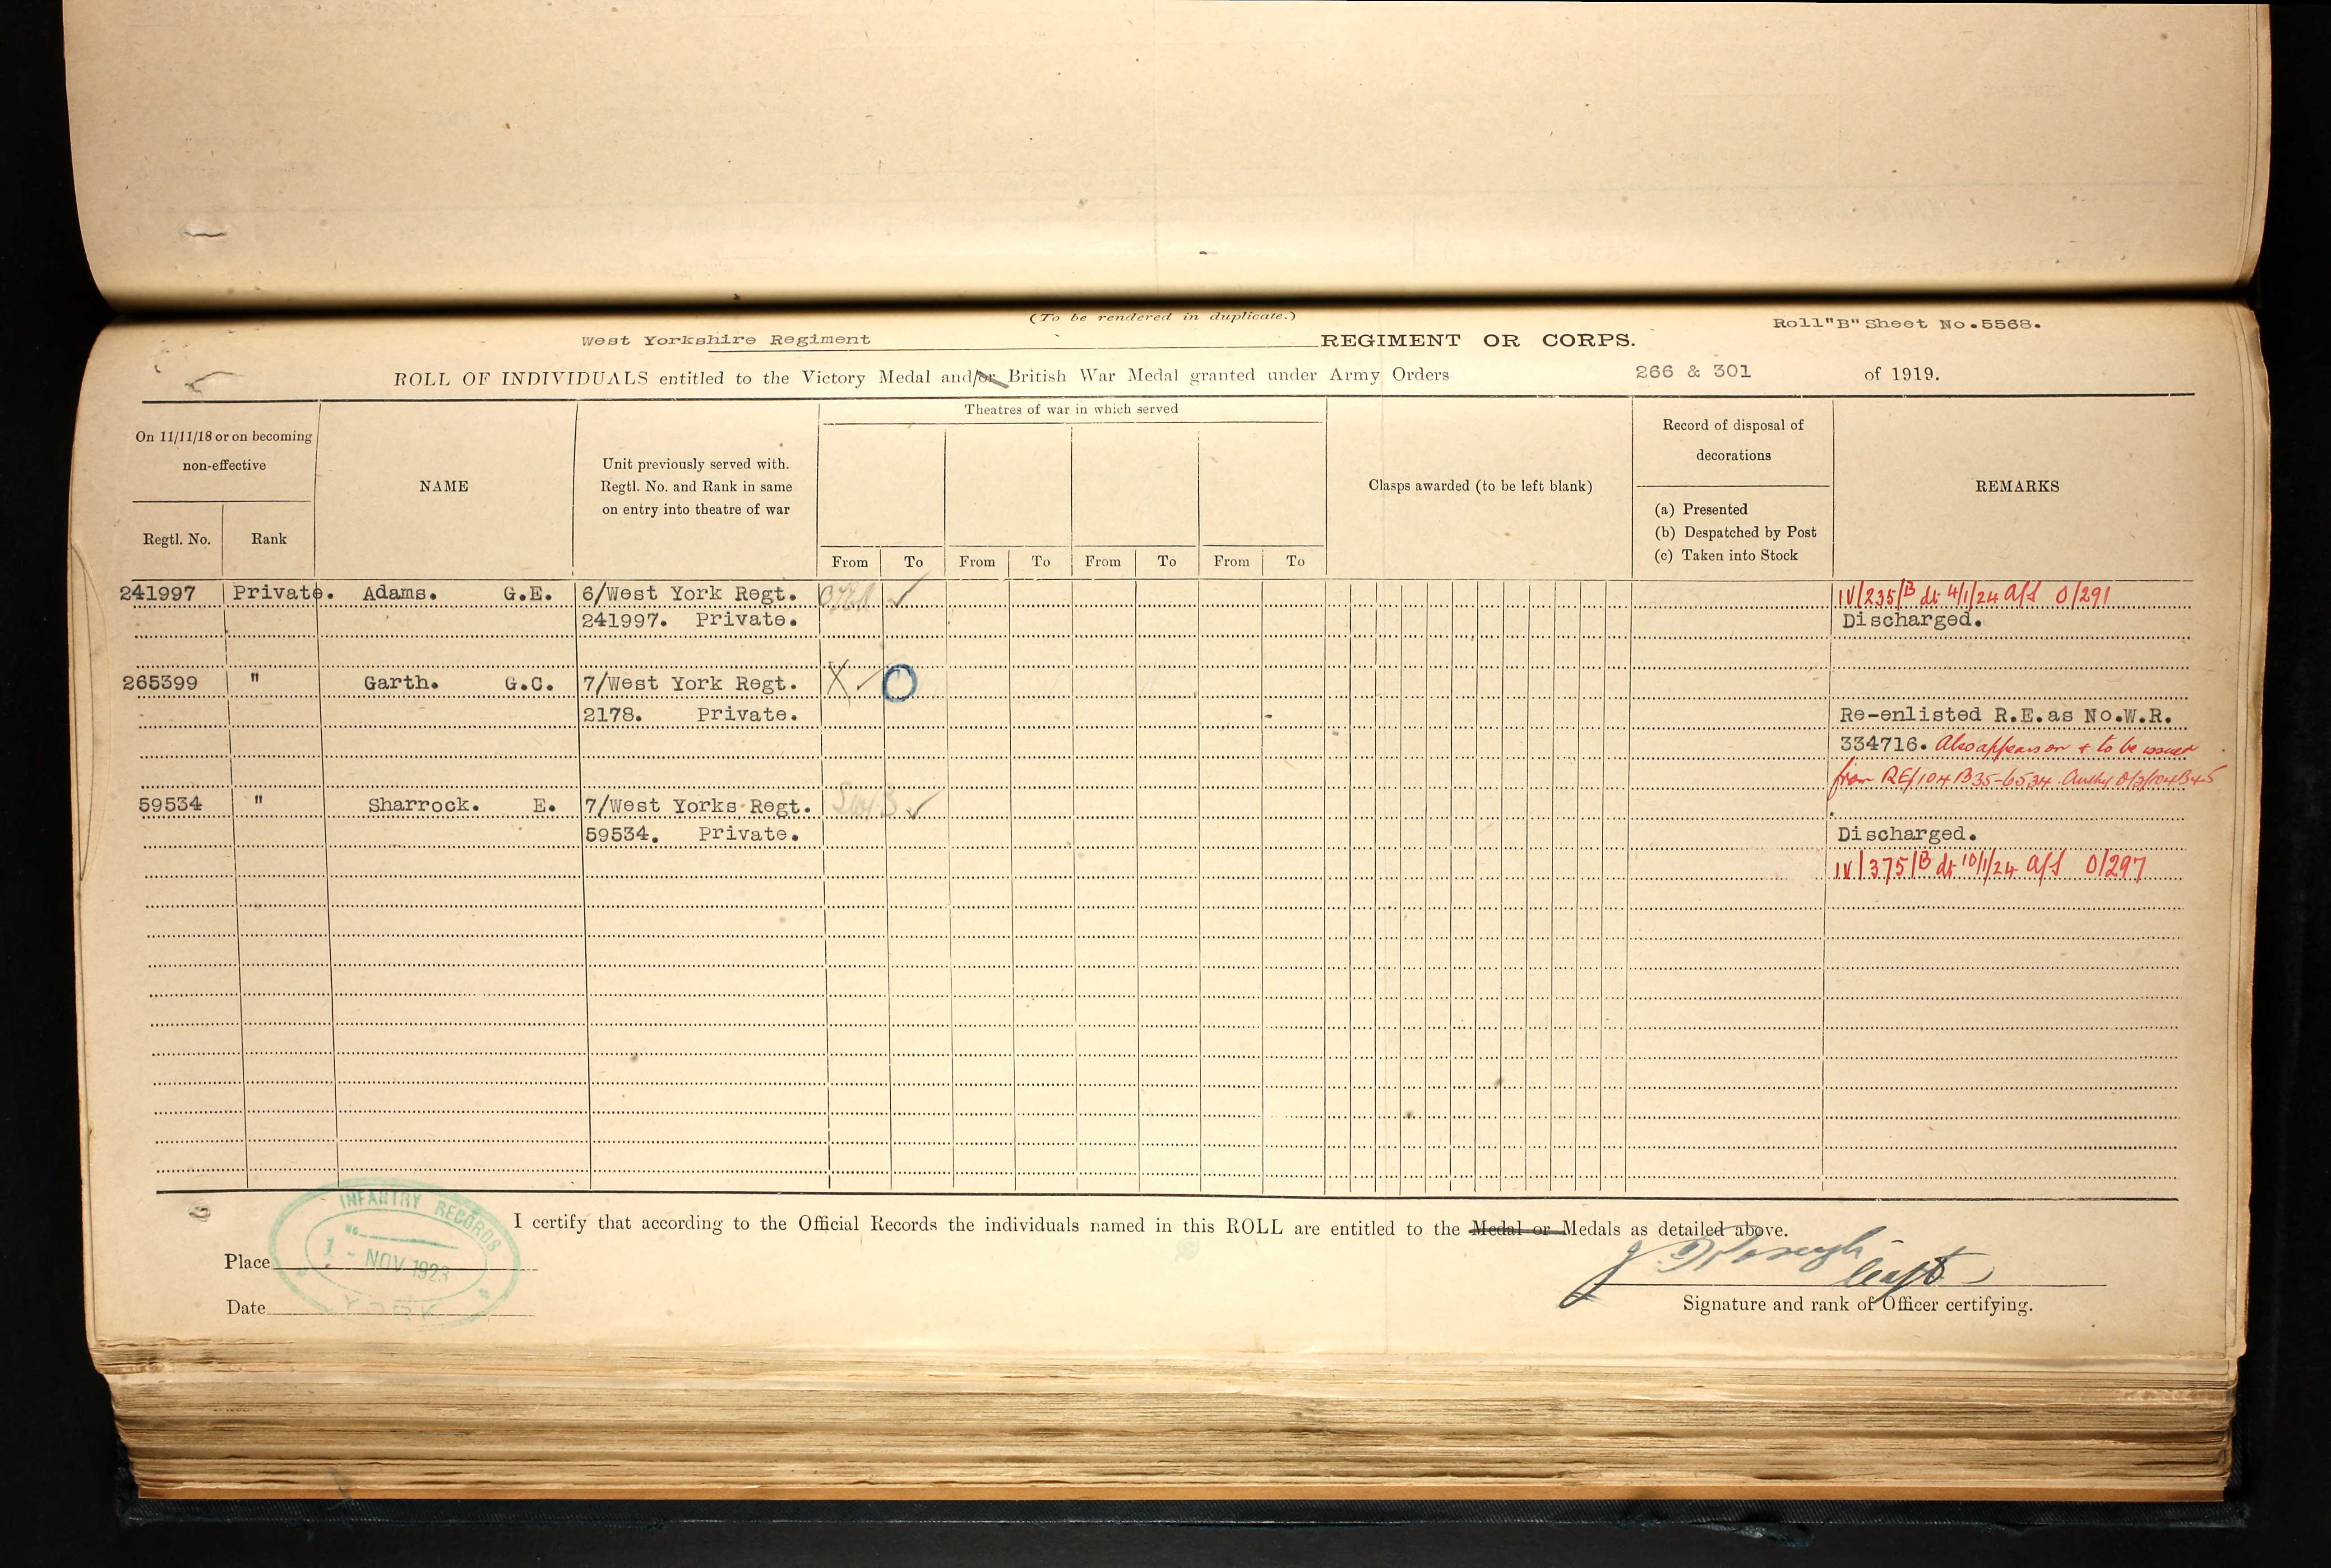 (To be rendered in duplicate.)
Roll"B"Sheet No.5568.
West Yorkshire Regiment REGIMENT OR CORPS.
ROLL OF INDIVIDUALS entitled to the Victory Medal and/or British War Medal granted under Army Orders 266 & 301 of 1919.
On 11/11/18 or on becoming non-effective
Regtl. No.
Rank
NAME
Unit previously served with.
Regtl. No. and Rank in same
on entry into theatre of war
Theatres of war in which served
From To From To From To From To
Clasps awarded (to be left blank)
Record of disposal of
decorations
(a) Presented
(b) Despatched by Post
(c) Taken into Stock
REMARKS
241997 Private. Adams. G.E. 6/West York Regt. IV/235/B dt 4/1/24 O/291
241997. Private. Discharged.
265399 " Garth. G.C. 7/West York Regt. X
2178. Private. Re-enlisted R.E.as No.W.R.
334716. Also appears on & to be issued
from RE/104B35-6534.
59534 " Sharrock. E. 7/West Yorks Regt.
59534. Private. Discharged.
IV/375/B dt 10/1/24 O/297
I certify that according to the Official Records the individuals named in this ROLL are entitled to the Medal or Medals as detailed above.
INFANTRY RECORDS
No
1 - NOV 1923
YORK
Place
Date
Capt
Signature and rank of Officer certifying.